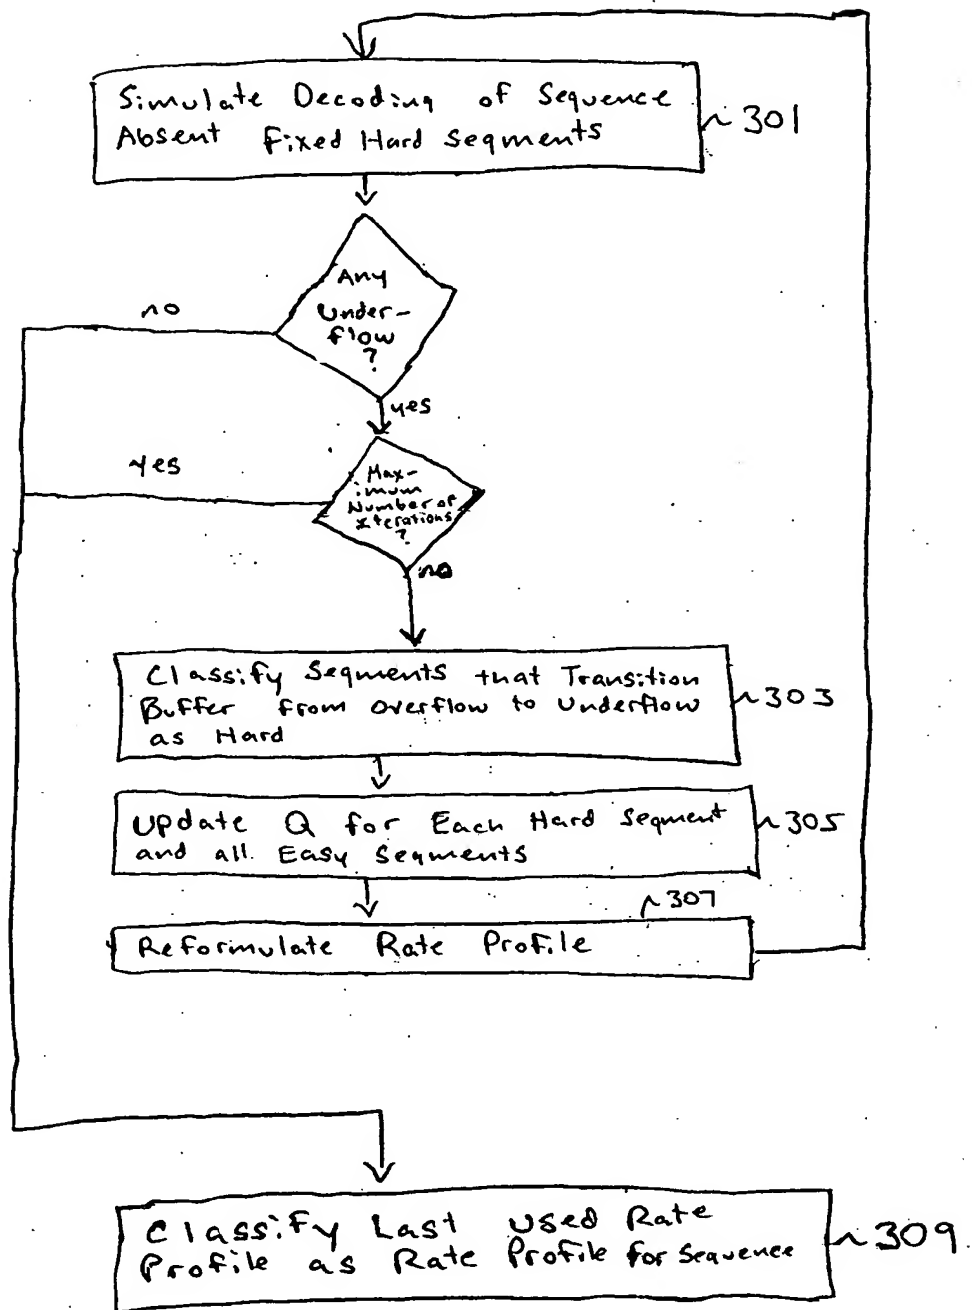 Simulate Decoding of Sequence
Absent Fixed Hard Segments
301
Any
Under-
flow
?
no
yes
Max-
imum
Number of
Iterations
?
yes
no
Classify Segments that Transition
Buffer from Overflow to Underflow
as Hard
303
Update Q for Each Hard Segment
and all Easy Segments
305
307
Reformulate Rate Profile
Classify Last Used Rate
Profile as Rate Profile for Sequence
309